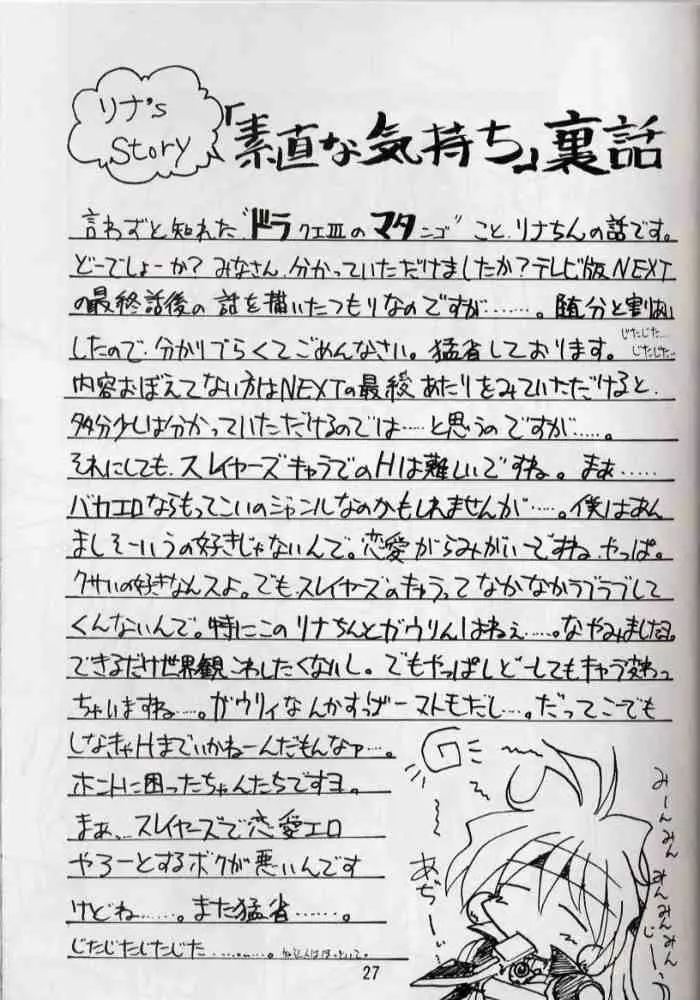 リナ's
Story
「素直な気持ち」裏話
言わずと知れた"ドラクエⅢのマタンゴ"こと、リナちんの話です。
どーでしょーか？みなさん、分かっていただけましたか？テレビ版NEXT
の最終話後の話を描いたつもりなのですが……。随分と割あい
したので、分かりづらくてごめんなさい。猛省しております。
じたじた…
じたじた…
内容おぼえてない方はNEXTの最終あたりをみていただけると、
多分少しは分かっていただけるのでは…と思うのですが……。
それにしても、スレイヤーズキャラでのHは難しいですね。まぁ……
バカエロならもってこいのジャンルなのかもしれませんが……。僕はあん
ましそーいうの好きじゃないんで。恋愛がらみがいーですね、やっぱ。
クサいの好きなんスよ。でも、スレイヤーズのキャラってなかなかラブラブして
くんないんで。特にこのリナちんとガウりんはねぇ……。なやみました。
できるだけ世界観こわしたくないし。でもやっぱしどーしてもキャラ変わっ
ちゃいますね……。ガウリィなんかすっげーマトモだし…。だってこーでも
しなきゃHまでいかねーんだもんなァ…。
ホントに困ったちゃんたちですヨ。
まぁ、スレイヤーズで恋愛エロ
やろーとするボクが悪いんです
けどね……。また猛省……。
じたじたじたじた………。
G〜
あぢーぃ
みーんみん
みんみんみん
じーー
27